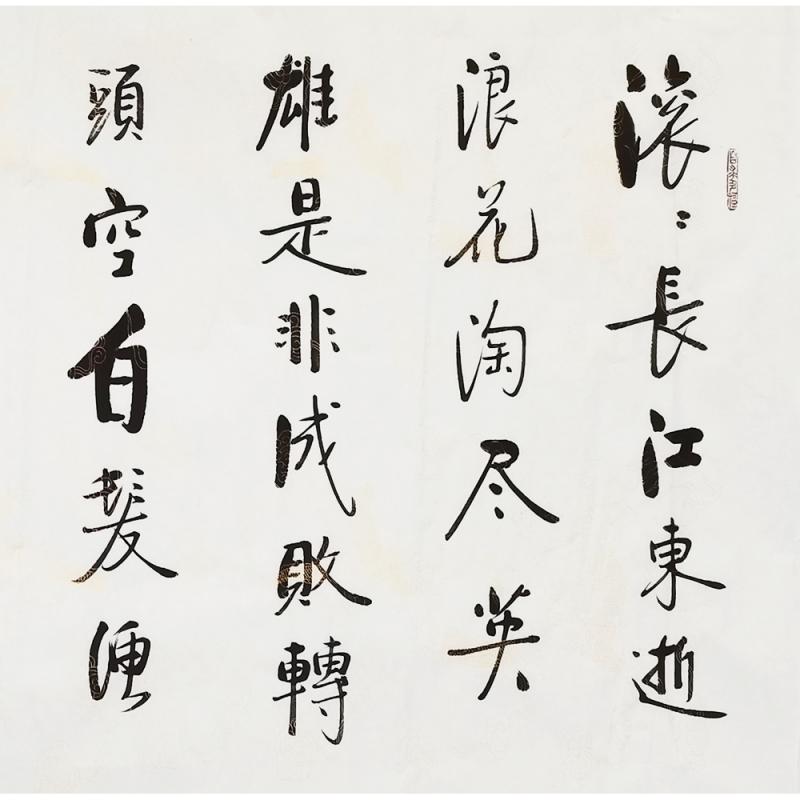 滚〻長江東逝
浪花淘尽英
雄是非成敗轉
頭空白髮漁